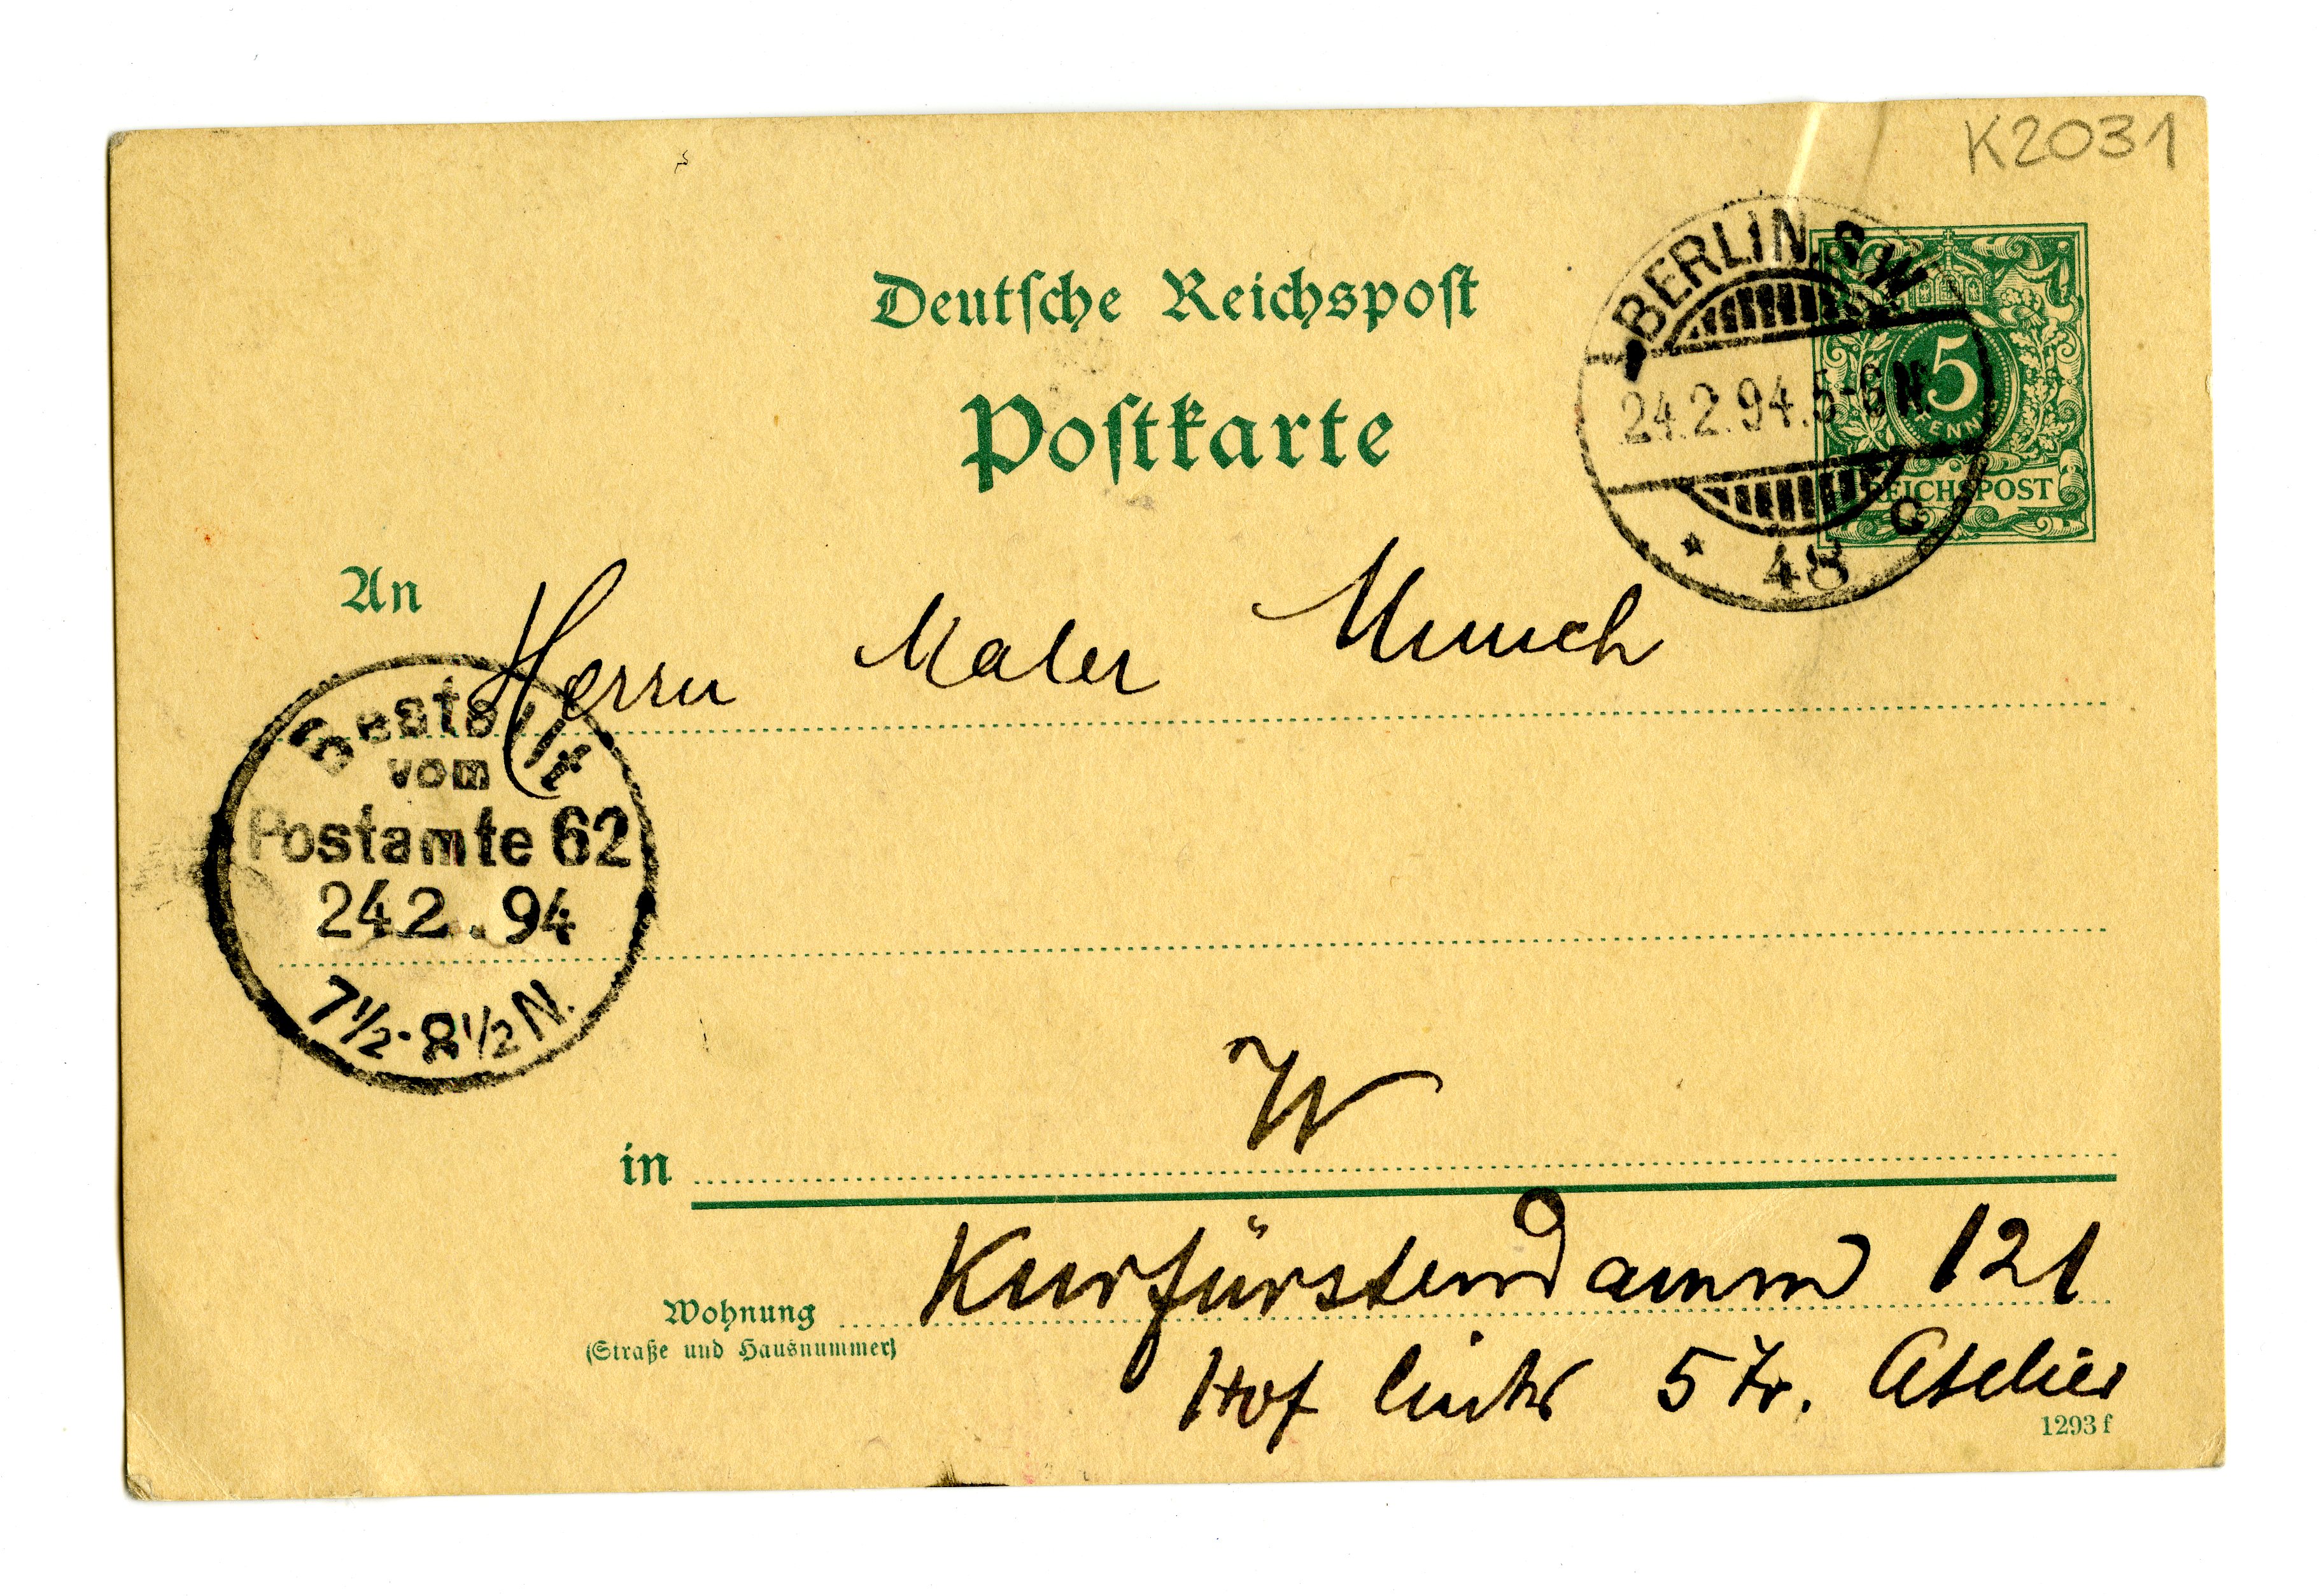 K2031
Deutsche Reichspost
Postkarte
BERLIN.S.W.
24.2.94.5-6N.
* 48 c
5
PFENNIG
REICHSPOST
An
Herrn Maler Munch
Bestellt
vom
Postamte 62
24.2.94
7½-8½N.
in W
Wohnung Kurfürstendamm 121
(Straße und Hausnummer)
Hof links 5 Tr. Atelier
1293 f